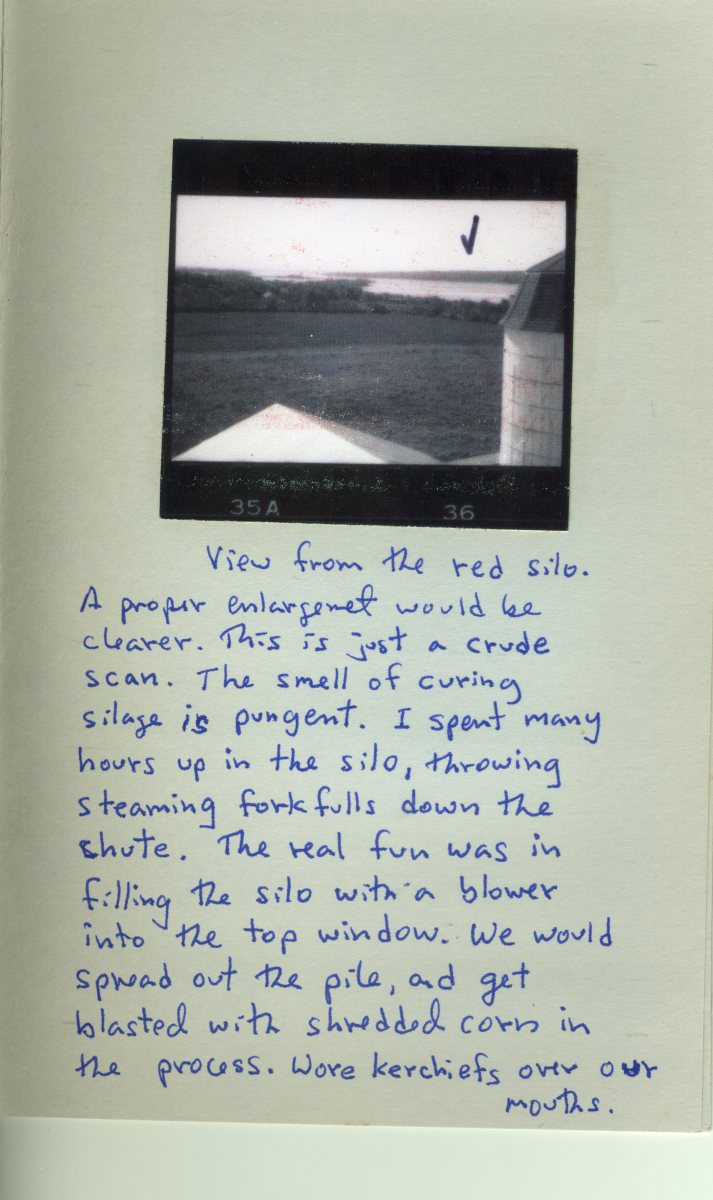 35A 36
View from the red silo.
A proper enlargemet would be
clearer. This is just a crude
scan. The smell of curing
silage is pungent. I spent many
hours up in the silo, throwing
steaming forkfulls down the
shute. The real fun was in
filling the silo with a blower
into the top window. We would
spread out the pile, and get
blasted with shredded corn in
the process. Wore kerchiefs over our
mouths.